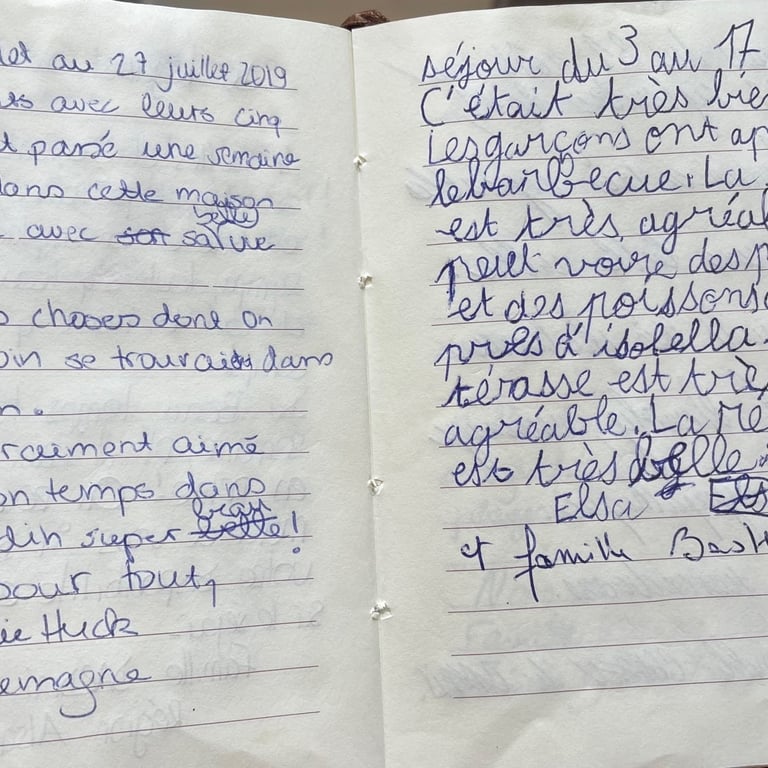 au 27 juillet 2019
avec leurs cinq
passé une semaine
dans cette maison
belle
avec salvie
choses donc on
se trouvaient dans
vraiment aimé
temps dans
beau
super !
pour tout,
Huck
séjour du 3 au 17
C'était très
Les garçons ont
le barbecue. La
est très agréa
peut voire des
et des poissons
près d'isobella.
térasse est trè
agréable. La
est très belle.
Elsa
et famille